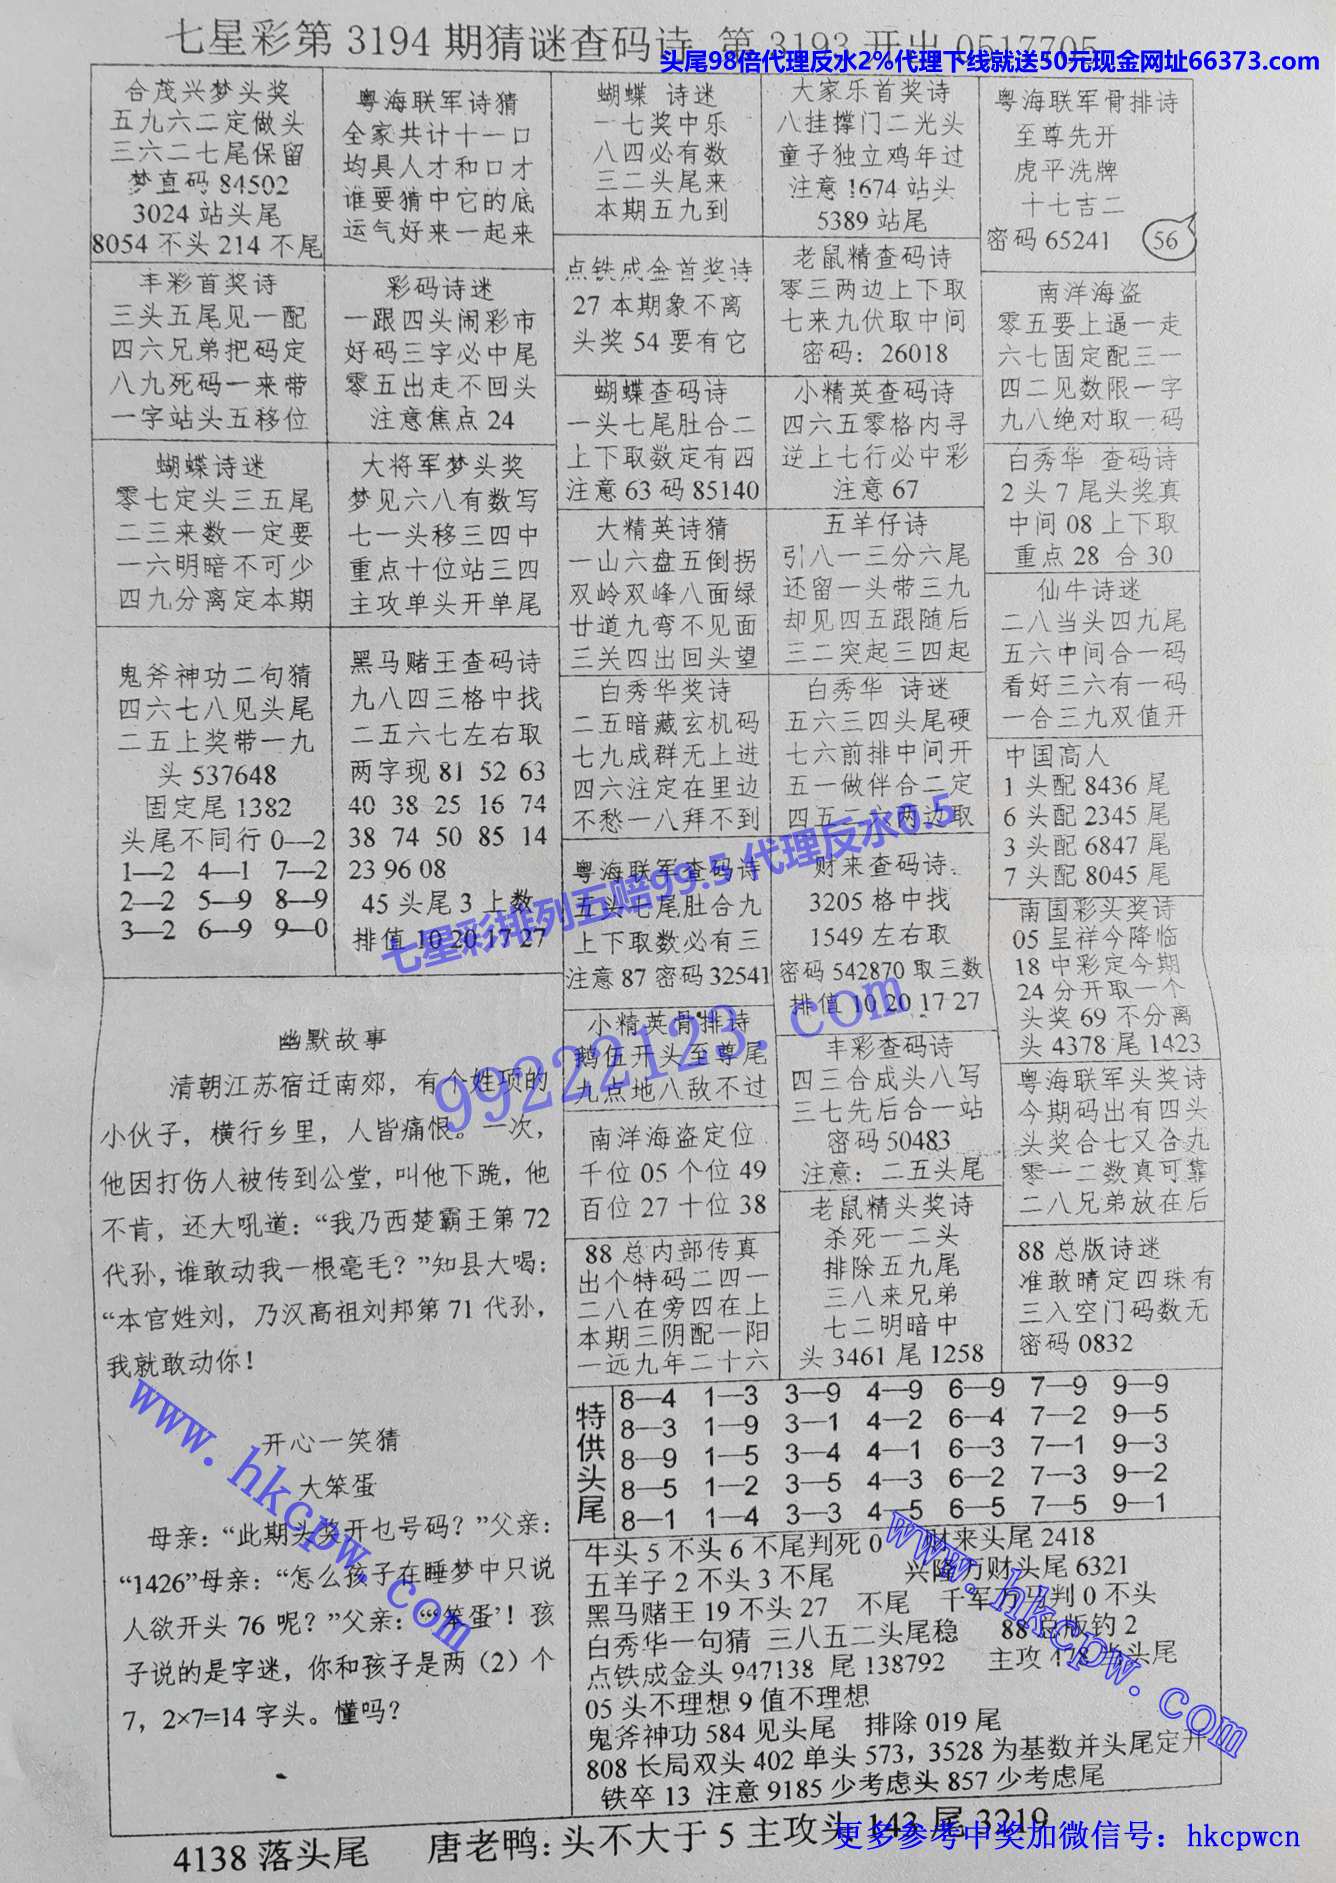 七星彩第 3194 期猜谜查码诗 第 3193 开出 0517705
头尾98倍代理反水2%代理下线就送50元现金网址66373.com
合茂兴梦头奖
五九六二定做头
三六二七尾保留
梦直码 84502
3024 站头尾
8054 不头 214 不尾
粤海联军诗猜
全家共计十一口
均具人才和口才
谁要猜中它的底
运气好来一起来
蝴蝶 诗迷
一七奖中乐
八四必有数
三二头尾来
本期五九到
大家乐首奖诗
八挂撑门二光头
童子独立鸡年过
注意 1674 站头
5389 站尾
粤海联军骨排诗
至尊先开
虎平洗牌
十七吉二
密码 65241
56
丰彩首奖诗
三头五尾见一配
四六兄弟把码定
八九死码一来带
一字站头五移位
彩码诗迷
一跟四头闹彩市
好码三字必中尾
零五出走不回头
注意焦点 24
点铁成金首奖诗
27 本期象不离
头奖 54 要有它
老鼠精查码诗
零三两边上下取
七来九伏取中间
密码：26018
南洋海盗
零五要上逼一走
六七固定配三一
四二见数限一字
九八绝对取一码
蝴蝶查码诗
一头七尾肚合二
上下取数定有四
注意 63 码 85140
小精英查码诗
四六五零格内寻
逆上七行必中彩
注意 67
蝴蝶诗迷
零七定头三五尾
二三来数一定要
一六明暗不可少
四九分离定本期
大将军梦头奖
梦见六八有数写
七一头移三四中
重点十位站三四
主攻单头开单尾
大精英诗猜
一山六盘五倒拐
双岭双峰八面绿
廿道九弯不见面
三关四出回头望
五羊仔诗
引八一三分六尾
还留一头带三九
却见四五跟随后
三二突起三四起
白秀华 查码诗
2 头 7 尾头奖真
中间 08 上下取
重点 28 合 30
仙牛诗迷
二八当头四九尾
五六中间合一码
看好三六有一码
一合三九双值开
鬼斧神功二句猜
四六七八见头尾
二五上奖带一九
头 537648
固定尾 1382
头尾不同行 0—2
1—2 4—1 7—2
2—2 5—9 8—9
3—2 6—9 9—0
黑马赌王查码诗
九八四三格中找
二五六七左右取
两字现 81 52 63
40 38 25 16 74
38 74 50 85 14
23 96 08
45 头尾 3 上数
排值 10 20 17 27
白秀华奖诗
二五暗藏玄机码
七九成群无上进
四六注定在里边
不愁一八拜不到
白秀华 诗迷
五六三四头尾硬
七六前排中间开
五一做伴合二定
四五二六两边取
中国高人
1 头配 8436 尾
6 头配 2345 尾
3 头配 6847 尾
7 头配 8045 尾
粤海联军查码诗
五头七尾肚合九
上下取数必有三
注意 87 密码 32541
财来查码诗
3205 格中找
1549 左右取
密码 542870 取三数
排值 10 20 17 27
南国彩头奖诗
05 呈祥今降临
18 中彩定今期
24 分开取一个
头奖 69 不分离
头 4378 尾 1423
七星彩排列五赔99.5 代理反水0.5
99222123.com
小精英骨排诗
鹅伍开头至尊尾
九点地八敌不过
丰彩查码诗
四三合成头八写
三七先后合一站
密码 50483
注意：二五头尾
粤海联军头奖诗
今期码出有四头
头奖合七又合九
零一二数真可靠
二八兄弟放在后
南洋海盗定位
千位 05 个位 49
百位 27 十位 38
老鼠精头奖诗
杀死一二头
排除五九尾
三八来兄弟
七二明暗中
头 3461 尾 1258
88 总内部传真
出个特码二四一
二八在旁四在上
本期三阴配一阳
一远九年二十六
88 总版诗迷
准敢晴定四珠有
三入空门码数无
密码 0832
幽默故事
清朝江苏宿迁南郊，有个姓项的
小伙子，横行乡里，人皆痛恨。一次，
他因打伤人被传到公堂，叫他下跪，他
不肯，还大吼道：“我乃西楚霸王第 72
代孙，谁敢动我一根毫毛？”知县大喝：
“本官姓刘，乃汉高祖刘邦第 71 代孙，
我就敢动你！
开心一笑猜
大笨蛋
母亲：“此期头奖开乜号码？”父亲：
“1426”母亲：“怎么孩子在睡梦中只说
人欲开头 76 呢？”父亲：“‘笨蛋’！孩
子说的是字迷，你和孩子是两（2）个
7，2×7=14 字头。懂吗？
www.hkcpw.com
特供头尾
8—4 1—3 3—9 4—9 6—9 7—9 9—9
8—3 1—9 3—1 4—2 6—4 7—2 9—5
8—9 1—5 3—4 4—1 6—3 7—1 9—3
8—5 1—2 3—5 4—3 6—2 7—3 9—2
8—1 1—4 3—3 4—5 6—5 7—5 9—1
牛头 5 不头 6 不尾判死 0 财来头尾 2418
五羊子 2 不头 3 不尾 兴隆万财头尾 6321
黑马赌王 19 不头 27 不尾 千军万马判 0 不头
白秀华一句猜 三八五二头尾稳 88 总版钓 2
点铁成金头 947138 尾 138792 主攻 478 当头尾
05 头不理想 9 值不理想
鬼斧神功 584 见头尾 排除 019 尾
808 长局双头 402 单头 573，3528 为基数并头尾定开
铁卒 13 注意 9185 少考虑头 857 少考虑尾
www.hkcpw.com
4138 落头尾 唐老鸭：头不大于 5 主攻头 143 尾 3219
更多参考中奖加微信号：hkcpwcn